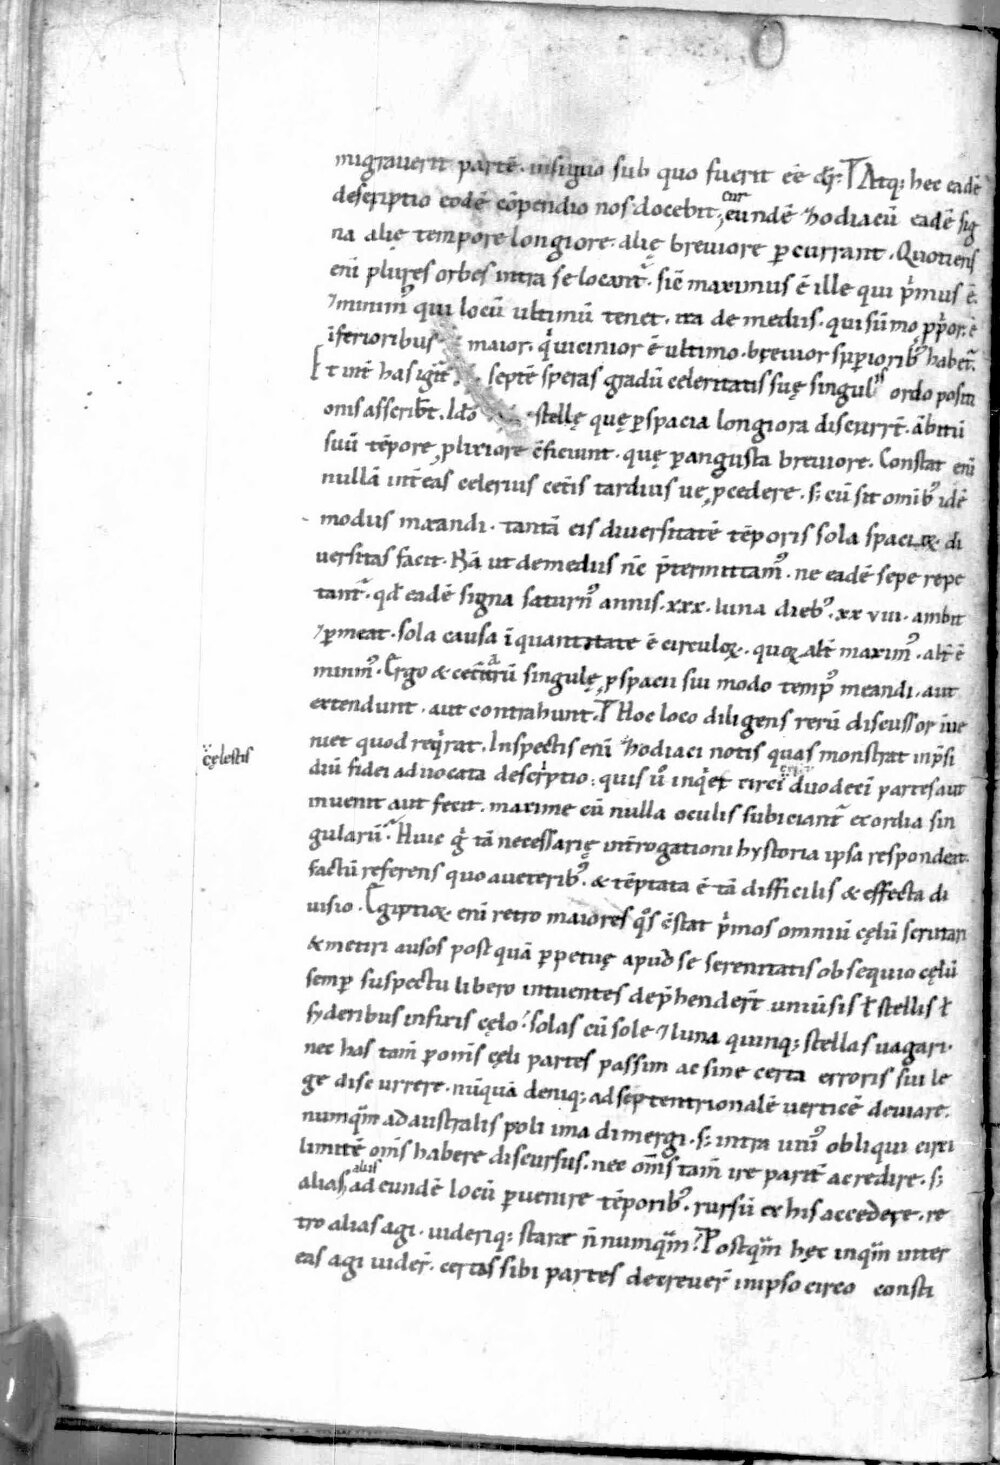 migrauerit partē. insigno sub quo fuerit eē dr̄. Atq; hec eadē
descriptio eodē cōpendio nos docebit. cur eundē ʒodiacū eadē sig
na alię tempore longiore. alię breuiore ꝑcurrant. Quotiens
eni plures orbes intra se locant̄. sic̄ maximus ē ille qui p̍mus ē.
⁊ minimꝰ qui locū ultimū tenet. ita de mediis. qui sūmo ꝓp̍or. ē
īferioribus maior. q̍ uicinior ē ultimo. breuior supioribꝰ habet̄.
Et int̄ has igit̄ septē speras gradū celeritatis suę singulis ordo positi
onis asscribt̄. Ido stellę quę ꝑ spacia longiora discurrt̄. ābitū
suū tēpore ꝓlixiore c̄ficiunt. quę ꝑ angusta breuiore. Constat eni
nullā int̄ eas celerius cet̄is tardius ue ꝓcedere. s; cū sit omībꝰ idē
modus meandi. tantā eis diuersitatē tēporis sola spacioꝝ di
uersitas facit. Nā ut de mediis nc̄ p̄termittamꝰ. ne eadē sepe repe
tant̄. qd̄ eadē signa saturnꝰ annis. xxx. luna diebꝰ. xx viii. ambit
⁊ ꝑmeat. sola causa ī quantitate ē circuloꝝ. quoꝝ alt̄ maximꝰ. alt̄ ē
minimꝰ. Ergo & cet̄arū singulę ꝓ spacii sui modo tempꝰ meandi. aut
extendunt. aut contrahunt. Hoc loco diligens rerū discussor īue
niet quod req̍rat. Inspectis eni ʒodiaci notis quas monstrat inp̄si
diū fidei aduocata descriptio: quis ū inq̍et circi duodeci partes aut
inuenit aut fecit. maxime cū nulla oculis subiciant̄ exordia sin
gularū. Huic g̍ tā necessarię int̄rogationi hystoria ipsa respondeat.
factū referens quo a ueteribꝰ. & tēptata ē tā difficilis & effecta di
uisio. Egiptioꝝ eni retro maiores q̍s c̄stat p̍mos omniū cęlū scrutari
& metiri ausos post quā ꝑpetuę apud se serenitatis obsequio cęlū
semꝑ suspectu libero intuentes dep̍hendert̄ uniūsis ł stellis ł
syderibus infixis cęlo. solas cū sole ⁊ luna quinq; stellas uagari.
nec has tam̄ ꝑ om̄s cęli partes passim ac sine certa erroris sui le
ge discurrere. nūquā deniq; ad septentrionalē uerticē deuiare.
numqm̄ ad australis poli ima dimergi. s; intra uniꝰ obliqui circi
limitē om̄s habere discursus. nec om̄s tam̄ ire parit̄ ac redire. s;
alias aliis ad eundē locū ꝑuenire tēporibꝰ. rursū ex his accedere. re
tro alias agi. uideriq; stare n̄ numqm̄. Postqm̄ hęc inqm̄ inter
eas agi uider̄. certas sibi partes decreuer̄ inipso circo consti
cęlestis